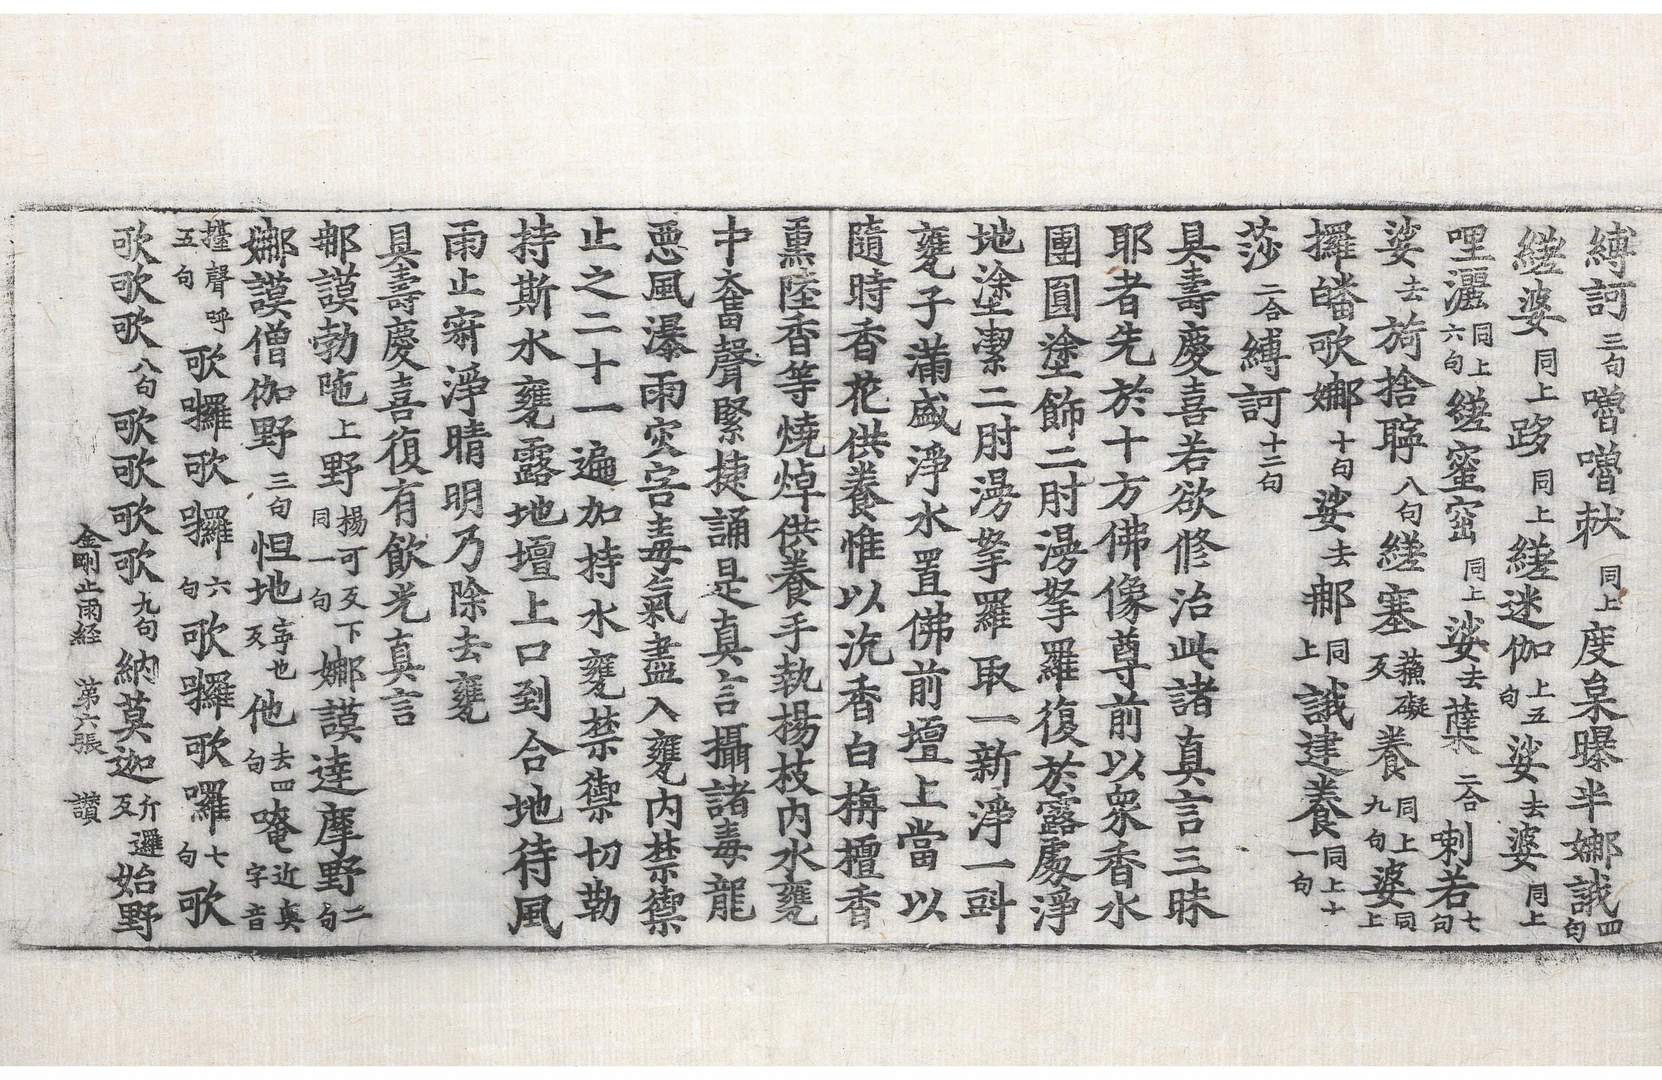 縛訶三句嚕嚕㰤同上度㮈曝半娜誐四句
縒婆同上跢同上縒迷伽上五句娑去婆同上
哩灑同上六句縒蜜窋同上娑去蘗二合喇若七句
娑去旖捨聹八句縒塞蘓礙反養同上九句婆同上
攞皤歌娜十句娑去那同上誐建養同上十一句
莎二合縛訶十二句
具壽慶喜若欲修治此諸真言三昧
耶者先於十方佛像尊前以衆香水
團圓塗飾二肘漫拏羅復於露處淨
地塗潔二肘漫拏羅取一新淨一㪷
甕子滿盛淨水置佛前壇上當以
隨時香花供養惟以沉香白栴檀香
熏陸香等燒焯供養手執楊枝內水甕
中奮聲緊捷誦是真言攝諸毒龍
惡風瀑雨灾害毒氣盡入甕內禁禦
止之二十一遍加持水甕禁禦切勒
持斯水甕露地壇上口到合地待風
雨止霽淨晴明乃除去甕
具壽慶喜復有飲光真言
那謨勃陁上野楊可反下同一句娜謨達摩野二句
娜謨僧伽野三句怛地亭也反他去四句唵近奭字音
擡聲呼五句歌囉歌囉六句歌囉歌囉七句歌
歌歌歌八句歌歌歌歌九句納莫迦斤反邐始野
金剛止雨経　第六張　讃